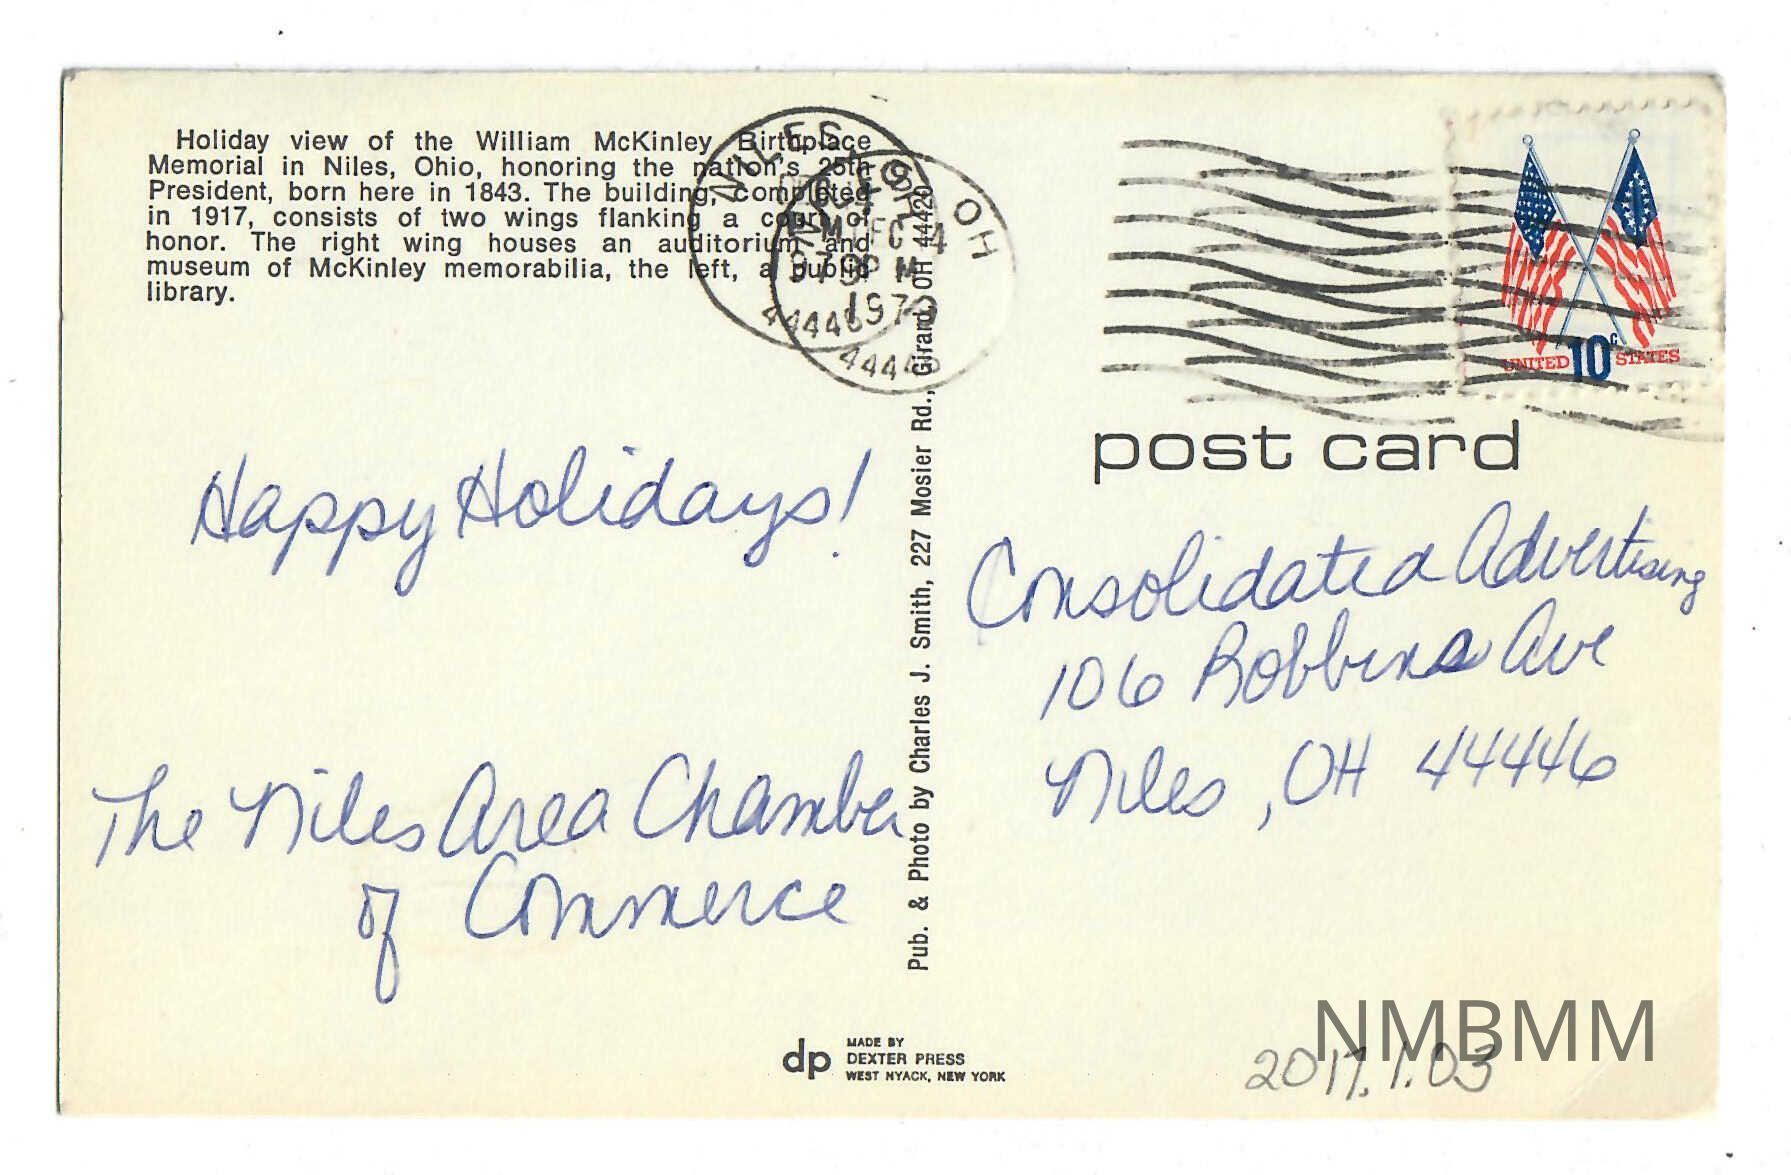 Holiday view of the William McKinley Birthplace
Memorial in Niles, Ohio, honoring the nation's 25th
President, born here in 1843. The building, completed
in 1917, consists of two wings flanking a court of
honor. The right wing houses an auditorium and
museum of McKinley memorabilia, the left, a public
library.
NILES OH
DEC 14
PM
1979
44446
NILES OH
DEC 14
PM
1979
44446
UNITED 10c STATES
post card
Happy Holidays!
The Niles Area Chamber
of Commerce
Pub. & Photo by Charles J. Smith, 227 Mosier Rd., Girard, OH 44420
Consolidated Advertising
106 Robbins Ave
Niles, OH 44446
dp
MADE BY
DEXTER PRESS
WEST NYACK, NEW YORK
NMBMM
2017.1.03